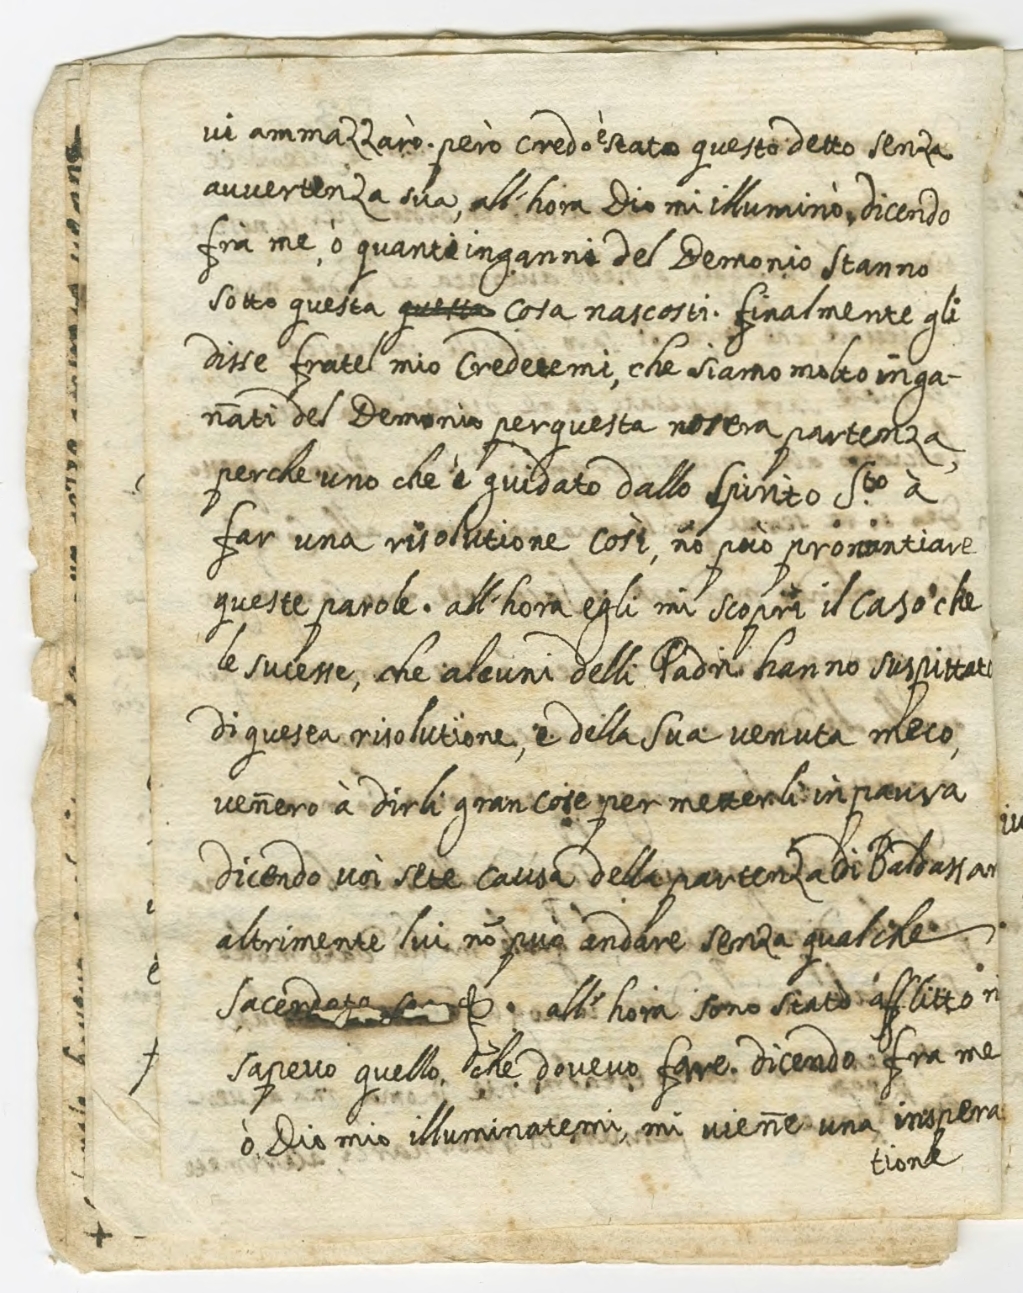 vi ammazzarò. però credo è stato questo detto senza
avvertenza sua, all'hora Dio mi illuminò, dicendo
frà me, ò quanti inganni del Demonio stanno
sotto questa questa cosa nascosti. finalmente gli
disse fratel mio Credetemi, che siamo molto inga-
n̄ati del Demonio per questa nostra partenza,
perche uno che è guidato dallo Spirito S.to à
far una risolutione così, nō può pronuntiare
queste parole. all'hora egli mi scoprì il caso che
le sucesse, che alcuni delli Padri hanno suspittato
di questa risolutione, e della sua venuta meco,
ven̄ero à dirli gran cose per metterli in paura
dicendo voi sete causa della partenza di Baldassar
altrimente lui nō può andare senza qualche
Sacerdote. all'hora sono stato afflitto ni
sapevo quello, che dovevo fare. dicendo frà me
ò Dio mio illuminatemi, mi vien̄e una inspera
tione